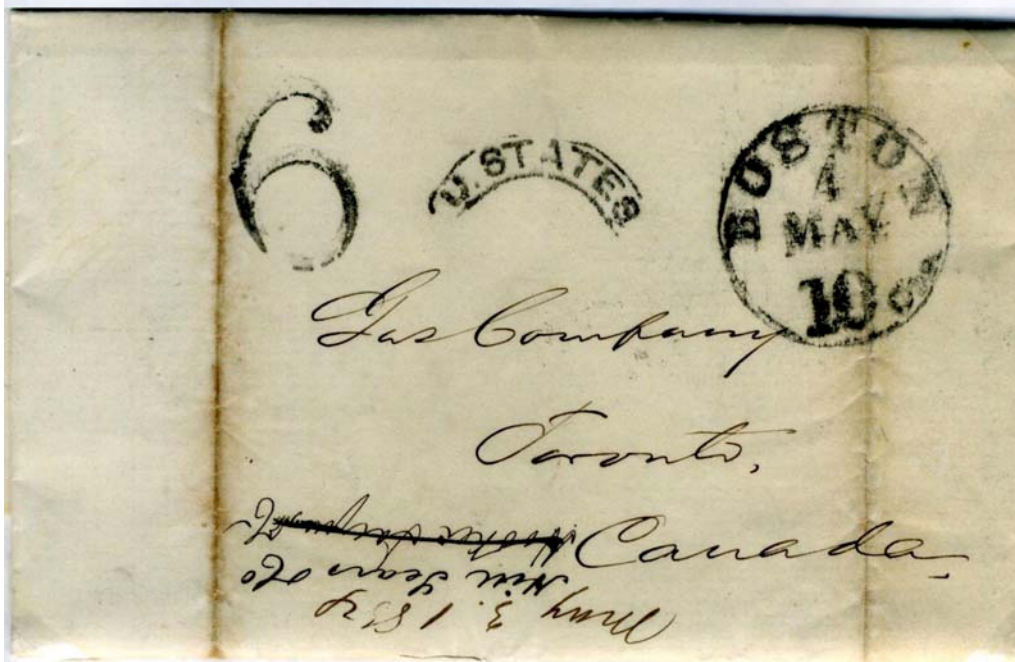 6
U. STATES
BOSTON
4
MAY
10 cts
Gas Company
Toronto,
Canada.
May 3. 185